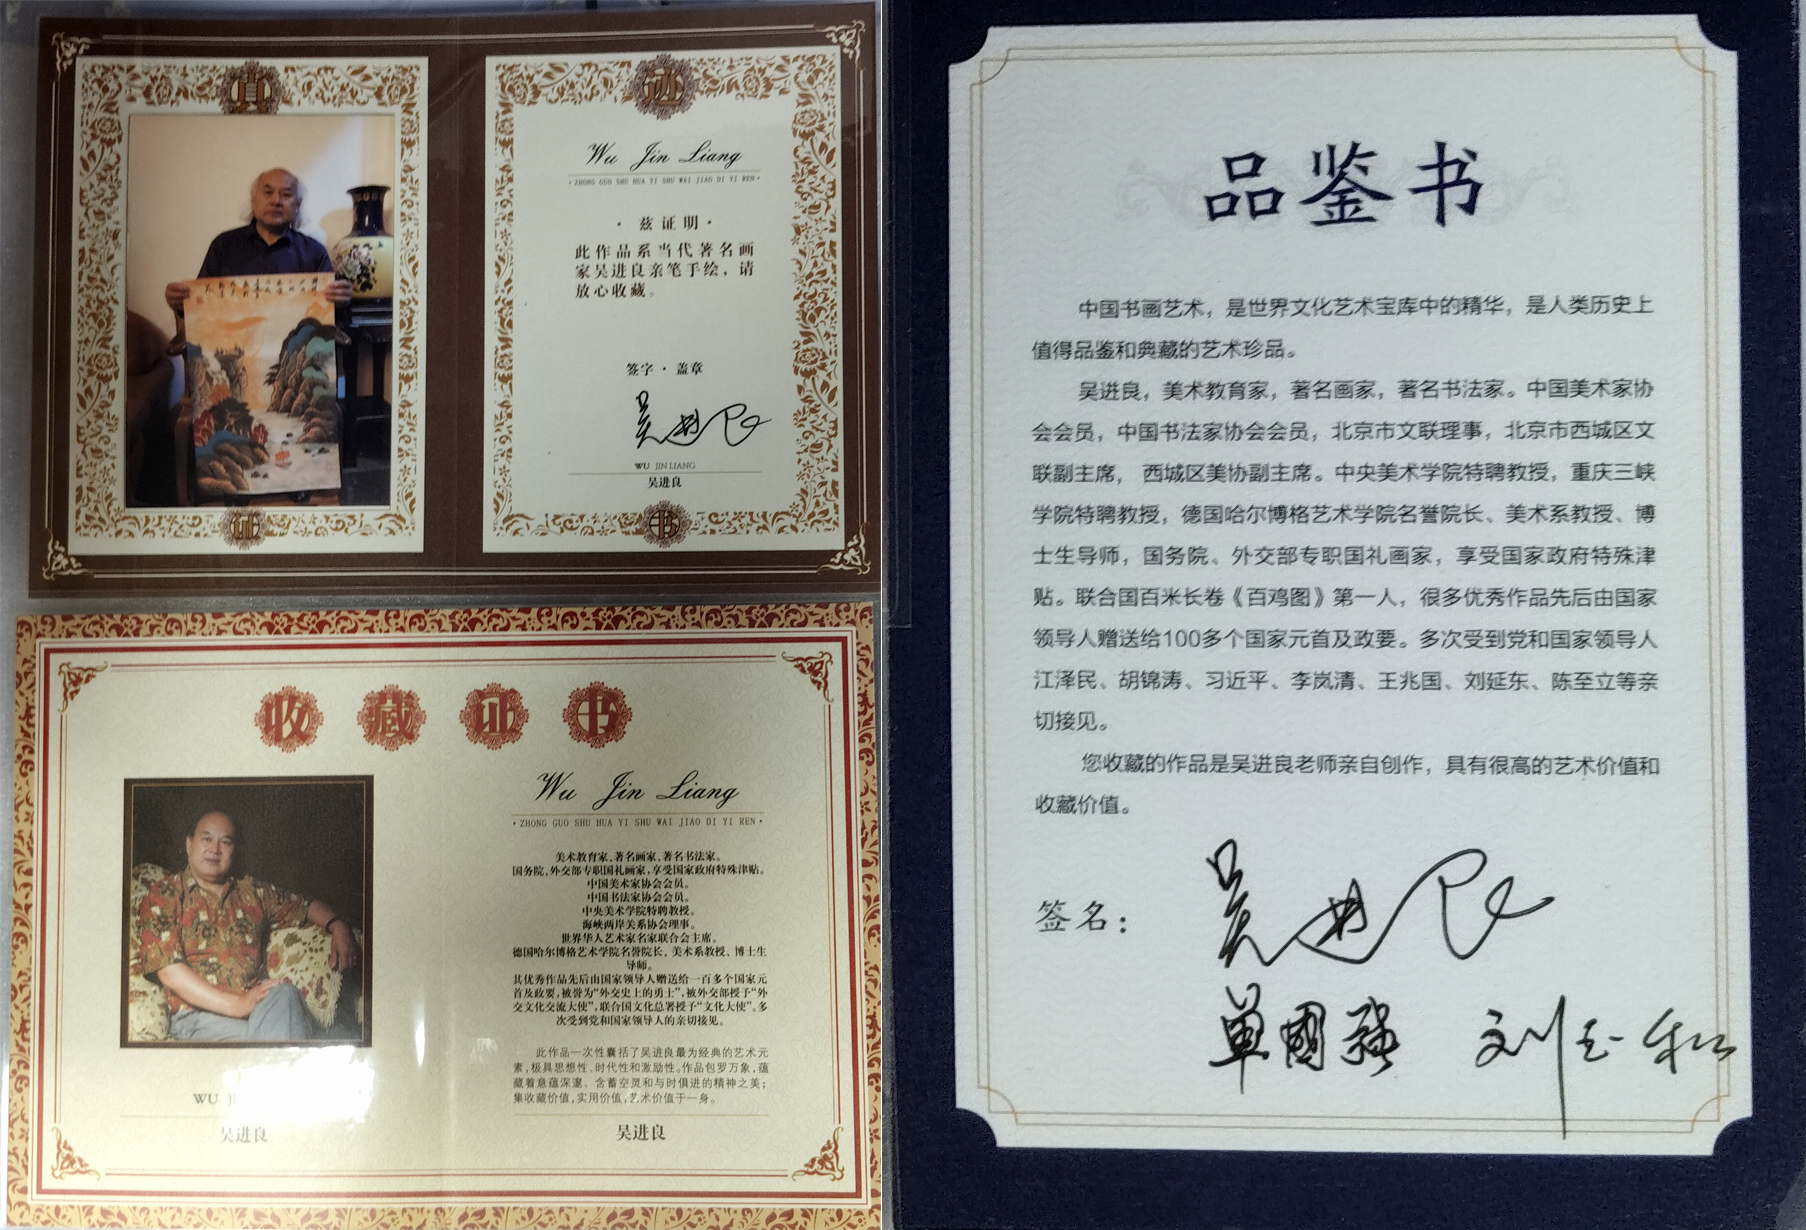 真
迹
Wu Jin Liang
·ZHONG GUO SHU HUA YI SHU WAI JIAO DI YI REN·
·兹证明·
此作品系当代著名画
家吴进良亲笔手绘，请
放心收藏。
签字·盖章
吴进良
WU JIN LIANG
吴进良
证
书
收藏证书
Wu Jin Liang
·ZHONG GUO SHU HUA YI SHU WAI JIAO DI YI REN·
美术教育家,著名画家,著名书法家。
国务院,外交部专职国礼画家,享受国家政府特殊津贴。
中国美术家协会会员。
中国书法家协会会员。
中央美术学院特聘教授。
海峡两岸关系协会理事。
世界华人艺术家名家联合会主席。
德国哈尔博格艺术学院名誉院长、美术系教授、博士生
导师。
其优秀作品先后由国家领导人赠送给一百多个国家元
首及政要,被誉为“外交史上的勇士”,被外交部授予“外
交文化交流大使”,联合国文化总署授予“文化大使”。多
次受到党和国家领导人的亲切接见。
此作品一次性囊括了吴进良最为经典的艺术元
素,极具思想性,时代性和激励性。作品包罗万象,蕴
藏着意蕴深邃、含蓄空灵和与时俱进的精神之美；
集收藏价值,实用价值,艺术价值于一身。
WU
吴进良
吴进良
品鉴书
中国书画艺术，是世界文化艺术宝库中的精华，是人类历史上
值得品鉴和典藏的艺术珍品。
吴进良，美术教育家，著名画家，著名书法家。中国美术家协
会会员，中国书法家协会会员，北京市文联理事，北京市西城区文
联副主席，西城区美协副主席。中央美术学院特聘教授，重庆三峡
学院特聘教授，德国哈尔博格艺术学院名誉院长、美术系教授、博
士生导师，国务院、外交部专职国礼画家，享受国家政府特殊津
贴。联合国百米长卷《百鸡图》第一人，很多优秀作品先后由国家
领导人赠送给100多个国家元首及政要。多次受到党和国家领导人
江泽民、胡锦涛、习近平、李岚清、王兆国、刘延东、陈至立等亲
切接见。
您收藏的作品是吴进良老师亲自创作，具有很高的艺术价值和
收藏价值。
签名：
吴进良
單國強